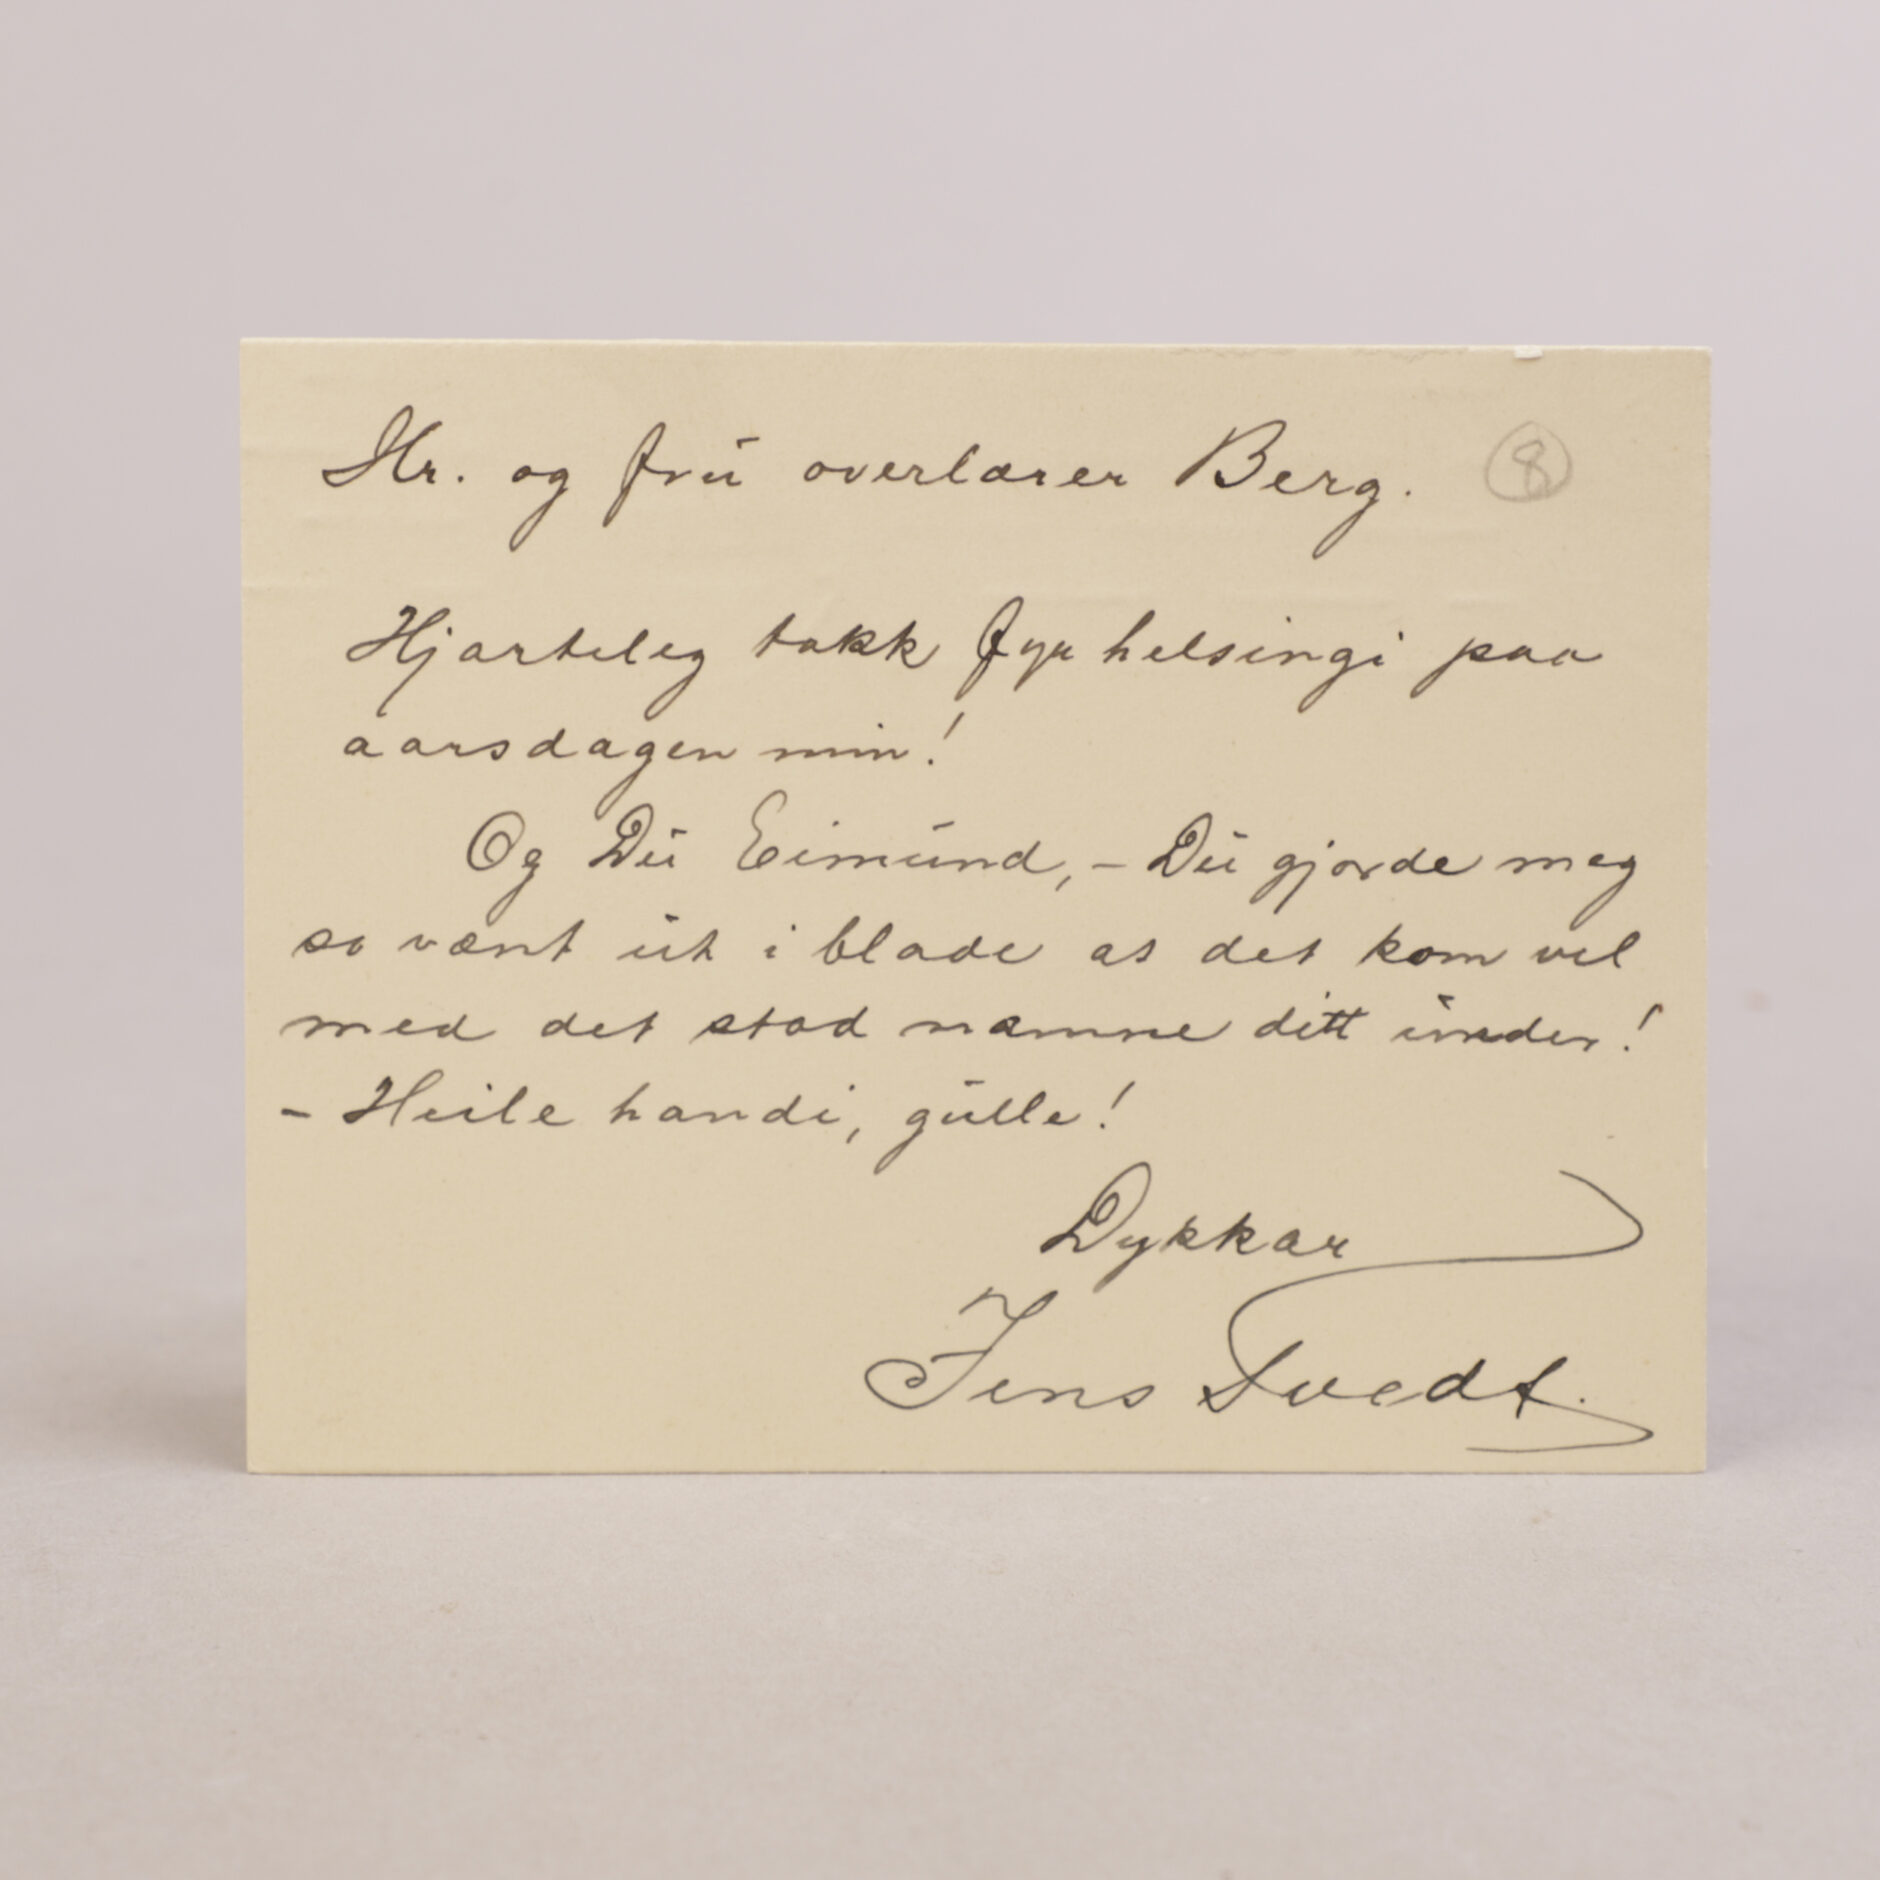 Hr. og frú overlærer Berg. 8
Hjarteleg takk fyr helsingi paa
aarsdagen min!
Og Dú Eimúnd, – Dú gjorde meg
so vænt út i blade at det kom vel
med det stod namne ditt únder!
– Heile handi, gúlle!
Dykkar
Jens Tvedt.